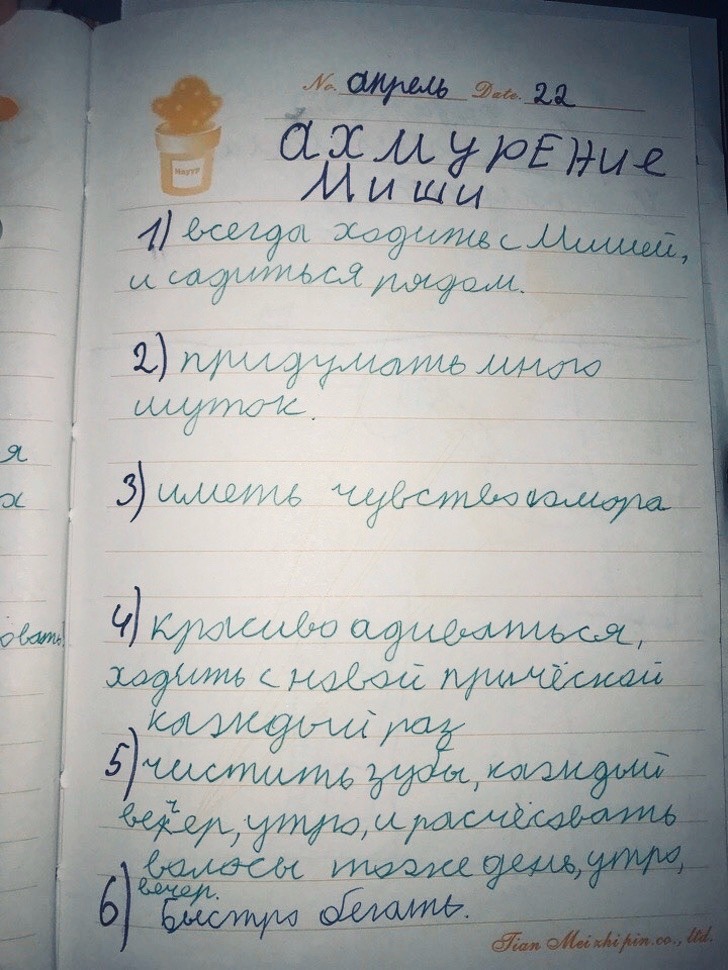 No. апрель Date. 22
ахмурЕние
Миши
1) всегда ходить с Мишей,
и садиться рядом.
2) придумать много
шуток.
3) иметь чувство юмора
я
х
4) красиво адиваться,
овать
ходить с новой причёской
каждый раз
5) чистить зубы, каждый
вечер, утро, и расчёсовать
волосы тоже день, утро,
вечер.
6) Быстро бегать.
Tian Mei zhi pin.co., ltd.